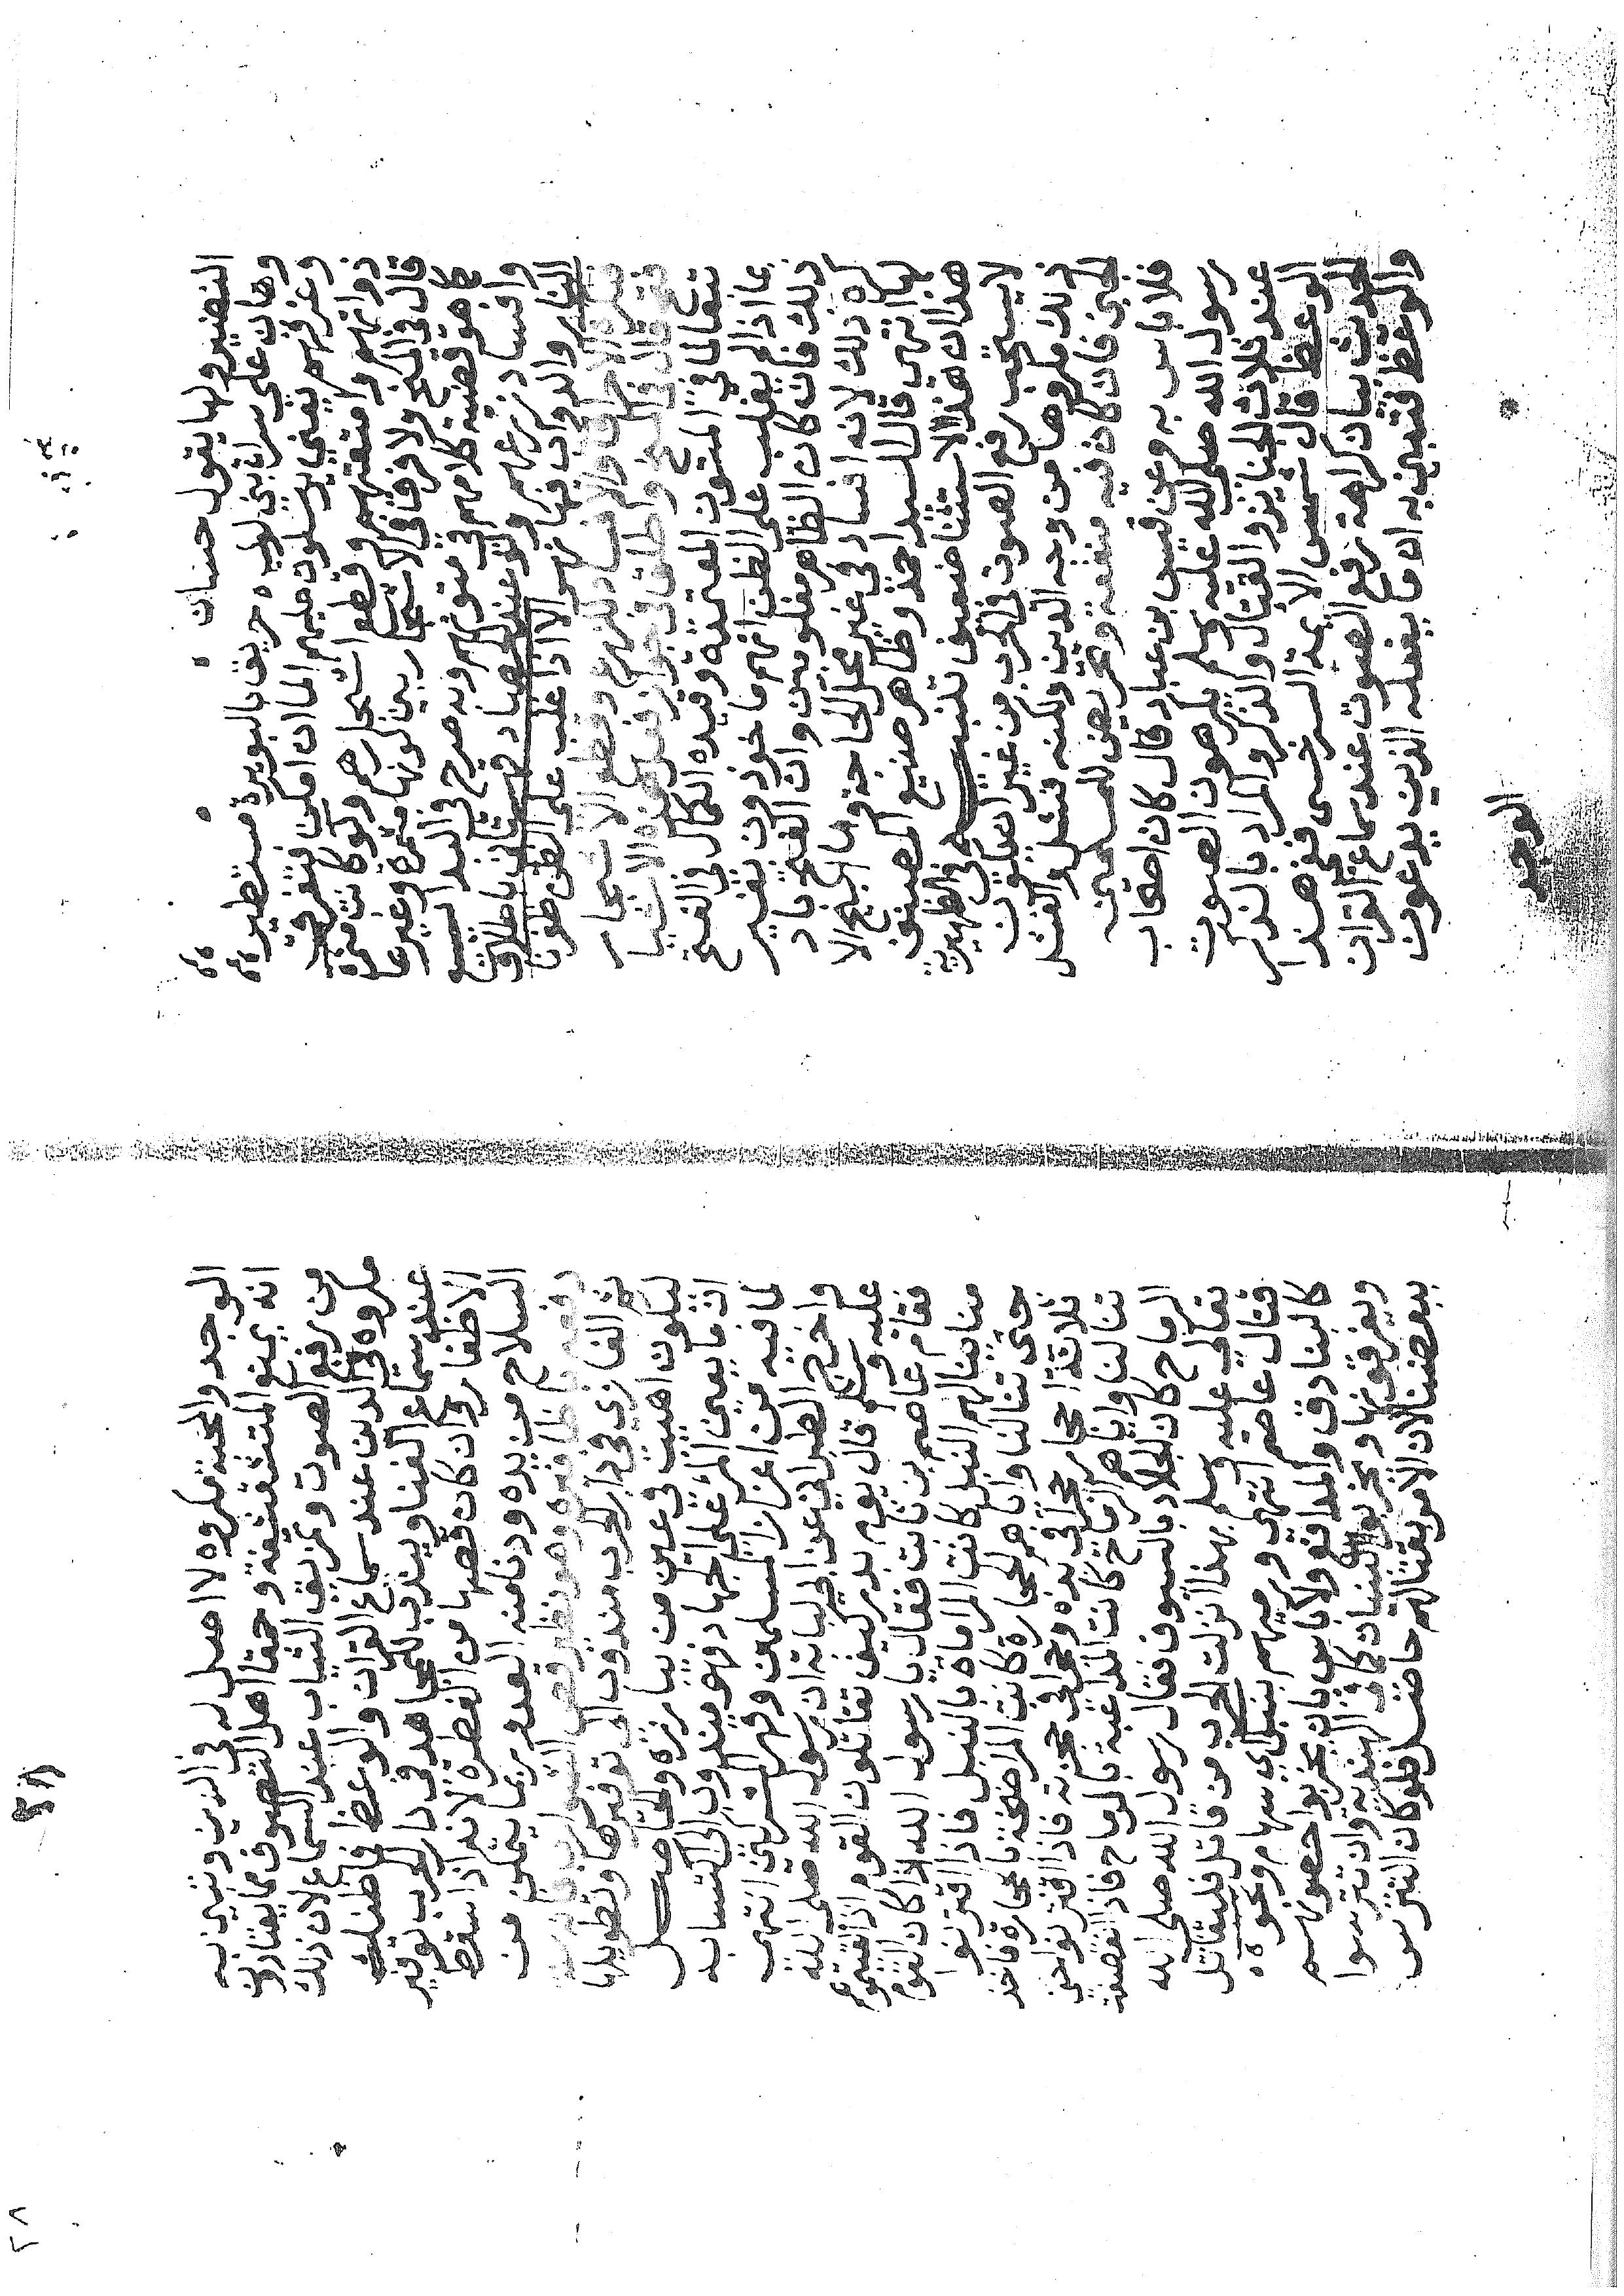 النضير ولها يقول حسان
وهان على سراة بني لوي ه حريق بالبويرة مستطير
وغرقهم يعني يرسلون عليهم الماء ان امكن فتغرق
ذواتهم وامتعتهم وقطع اشجارهم ولو كانت مثمرة
قال في المنح ولا فرق في الاشجار بين كونها مثمرة وغيرها
كما هو قضية كلامهم في متونهم وبه صرح في البدايع
وافساد زرعهم ولو عند الحصاد
النار والدواب فيها نهي الا اذا غلب على الظن ظفرنا
فيكره الاحراق والافساد للزرع وقطع الاشجار
قال في المنح واطلق في جواز فعل هذه الاشياء
تبعا لما في المتون المعتمدة وقيده الكمال في الفتح
بما اذا لم يغلب على الظن انهم ماخوذون بغير
ذلك فان كان الظاهر مغلوبين وان الفتح باد
كره ذلك لانه افساد في غير محل الحاجة وما ابيح الا
لها انتهى قال السيد احمد وظاهر صنيع المصنف
هذا ان هذا الاستثنا ضعيف تنبيه في الظهيرية
لا يستحب رفع الصوت في الحرب من غير ان يكون
ذلك مكروها من وجه الدين ولكنه فشل والفشل
الجبن فان كان فيه منفعة وتحريض للمسلمين
فلا باس به وعن قيس بن عباد قال كان اصحاب
رسول الله صلى الله عليه وسلم يكرهون الصوت
عند ثلاث الجنايز والقتال والذكر والمراد بالذكر
الوعظ قال شمس الايمة السرخسي ففي هذا
الحديث بيان كراهة رفع الصوت عند سماع القران
والوعظ فتبين به ان ما يفعله الذين يدعون
الوجد
الوجد والمحبة مكروه لا اصل له في الدين وتبين به
انه يمنع المتقشفة وحمقا اهل التصوف مما يعتادونه
من رفع الصوت وتمزيق الثياب عند السماع لان ذلك
مكروه في الدين عند سماع القران والوعظ فما ظنك
عند سماع الغنا ويندب للمجاهد في دار الحرب توفير
الاظفار وان كان قصها من الفطرة لانه اذا سقط
السلاح من يده ودنا منه العدو ربما يتمكن من
دفعه باظافيره وهو نظير قص الشوارب
ثم الغازي في دار الحرب مندوب الى توفيرها وتطويلها
ليكون اهيب في عين من يبارزه والحاصل
ان ما يعين المرء على الجهاد فهو مندوب الى اكتسابه
لما فيه من اعزاز المسلمين وقهر المشركين انتهى
واخرج الطبراني عن ابي لبابة ان رسول الله صلى الله
عليه وسلم قال يوم بدر كيف تقاتلون القوم اذا لقيتموهم
فقام عاصم بن ثابت فقال يا رسول الله اذا كان القوم
منا ينالهم النبل كانت المراماة بالنبل فاذا اقتربوا
حتى تنالنا واياهم الحجارة كانت المراضخة بالحجارة فاخذ
ثلاثة احجار حجرا في يده وحجرين في حجزته فاذا اقتربوا حتى
تنالنا واياهم الرماح كانت المداعسة بالرماح فاذا انقضت
الرماح كان الجلاد بالسيوف فقال رسول الله صلى الله
تعالى عليه وسلم بهذا انزلت الحرب من قاتل فليقاتل
قتال عاصم انتهى ورميهم بنبل اي سهام ونحوه
كالبنادق والمدافع ولا باس بان يخربوا حصونهم
ويغرقونها ويخربوا البنيان كما في الهندية وان تترسوا
ببعضنا لان الامر بقتالهم حاصل فلو كان التترس